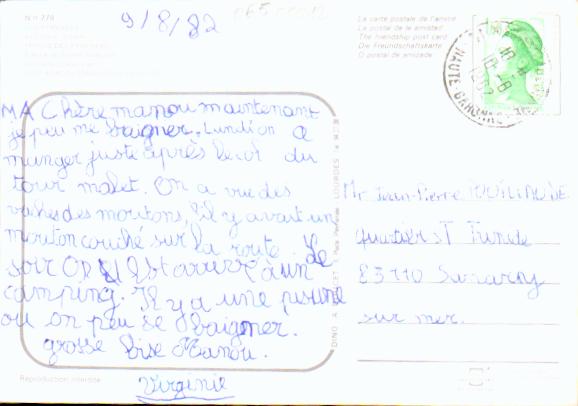 N.H 778
9/8/82
La carte postale de l'amitié
La postal de la amistad
The friendship post card
Die Freundschaftskarte
O postal de amizade
HAUTE GARONNE
MA Chère manou maintenant
je peu me baigner. Lundi on a
munger juste après le col du
tour malet. On a vue des
vaches des moutons, Il y avait un
mouton couché sur la route. Le
soir on est arrivé à un
camping. Il y a une pisine
ou on peu se baigner.
grosse bise Manou.
Virginie
Mr Jean-Pierre
quartier ST
83110 Sanary
sur mer.
LOURDES
Reproduction interdite